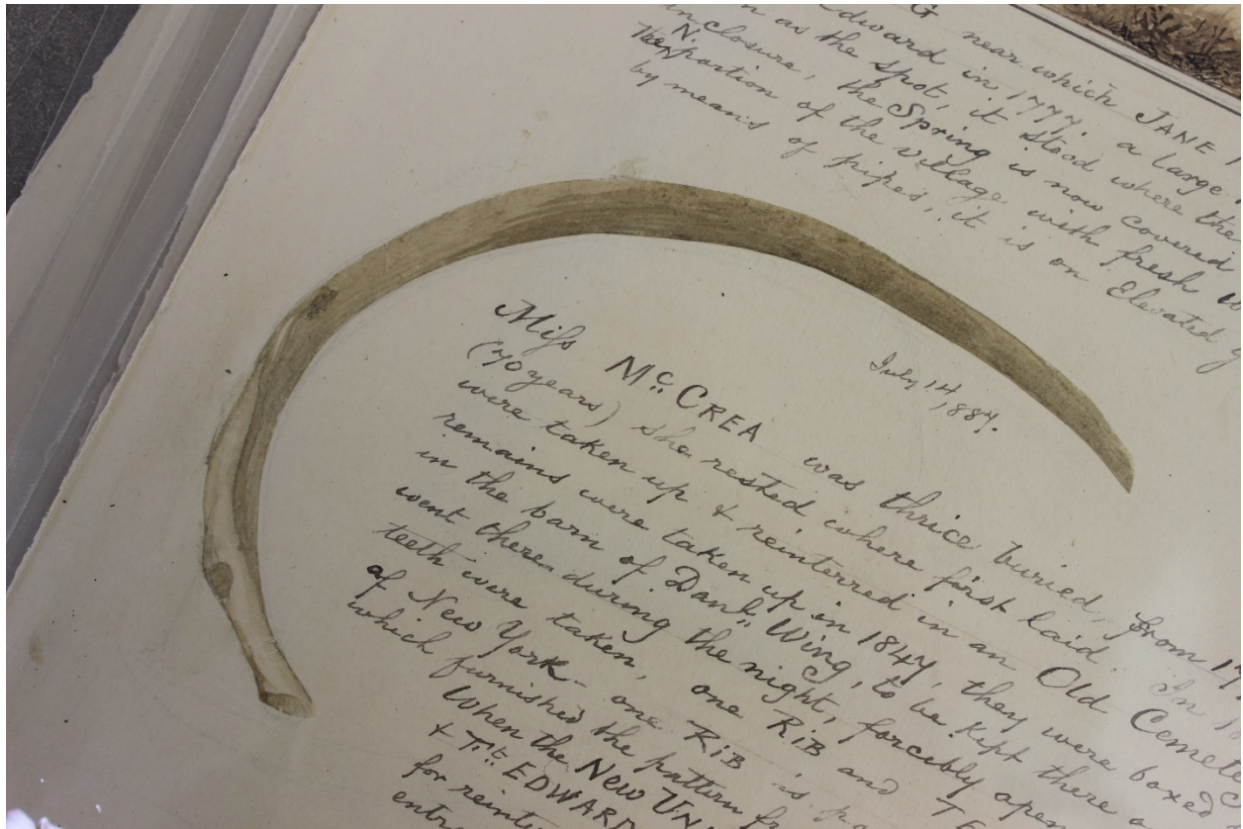 G near which JANE
dward in 1777. a large
n as the spot, it stood where the
inclosure, the Spring is now covered
N. portion of the village with fresh
by means of pipes, it is on Elevated g
July 14, 1887.
Miss McCREA was thrice buried, from 17
(70 years) she rested where first laid. In
were taken up & reinterred in an Old Cemete
remains were taken up in 1847, they were boxed
in the barn of Danl. Wing, to be kept there a
went there during the night, forcibly open
teeth were taken, one RIB and TE
of New York - one RIB is
which furnished the pattern fr
When the NEW UN
& Ft. EDWARD
for
entr